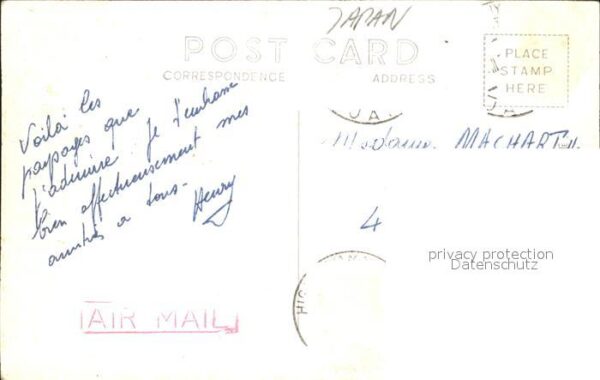 JAPAN
POST CARD
CORRESPONDENCE
ADDRESS
PLACE
STAMP
HERE
Voilà les
paysages que
j'admire je t'embrasse
bien affectueusement mes
amitiés a tous-
Henry
Madame MACHART
4
privacy protection
Datenschutz
AIR MAIL